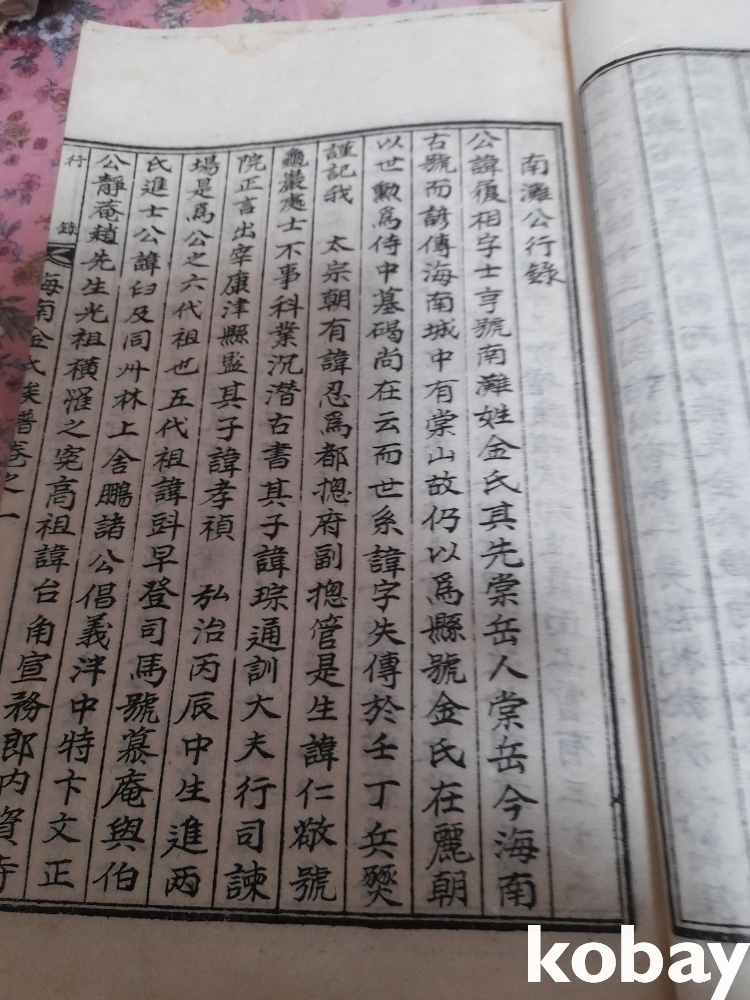 南灘公行錄
公諱復相字士亨號南灘姓金氏其先棠岳人棠岳今海南
古號而諺傳海南城中有棠山故仍以爲縣號金氏在麗朝
以世勲爲侍中墓碣尚在云而世系諱字失傳於壬丁兵燹
謹記我 太宗朝有諱忍爲都摠府副摠管是生諱仁敬號
龜巖處士不事科業沉潛古書其子諱琮通訓大夫行司諫
院正言出宰康津縣監其子諱孝禎 弘治丙辰中生進兩
場是爲公之六代祖也五代祖諱㪷早登司馬號慕庵與伯
氏進士公諱臼及同州林上舍鵬諸公倡義泮中特卞文正
公靜菴趙先生光祖橫罹之寃高祖諱台角宣務郎內資寺
行 錄 海南金氏族譜卷之一
kobay